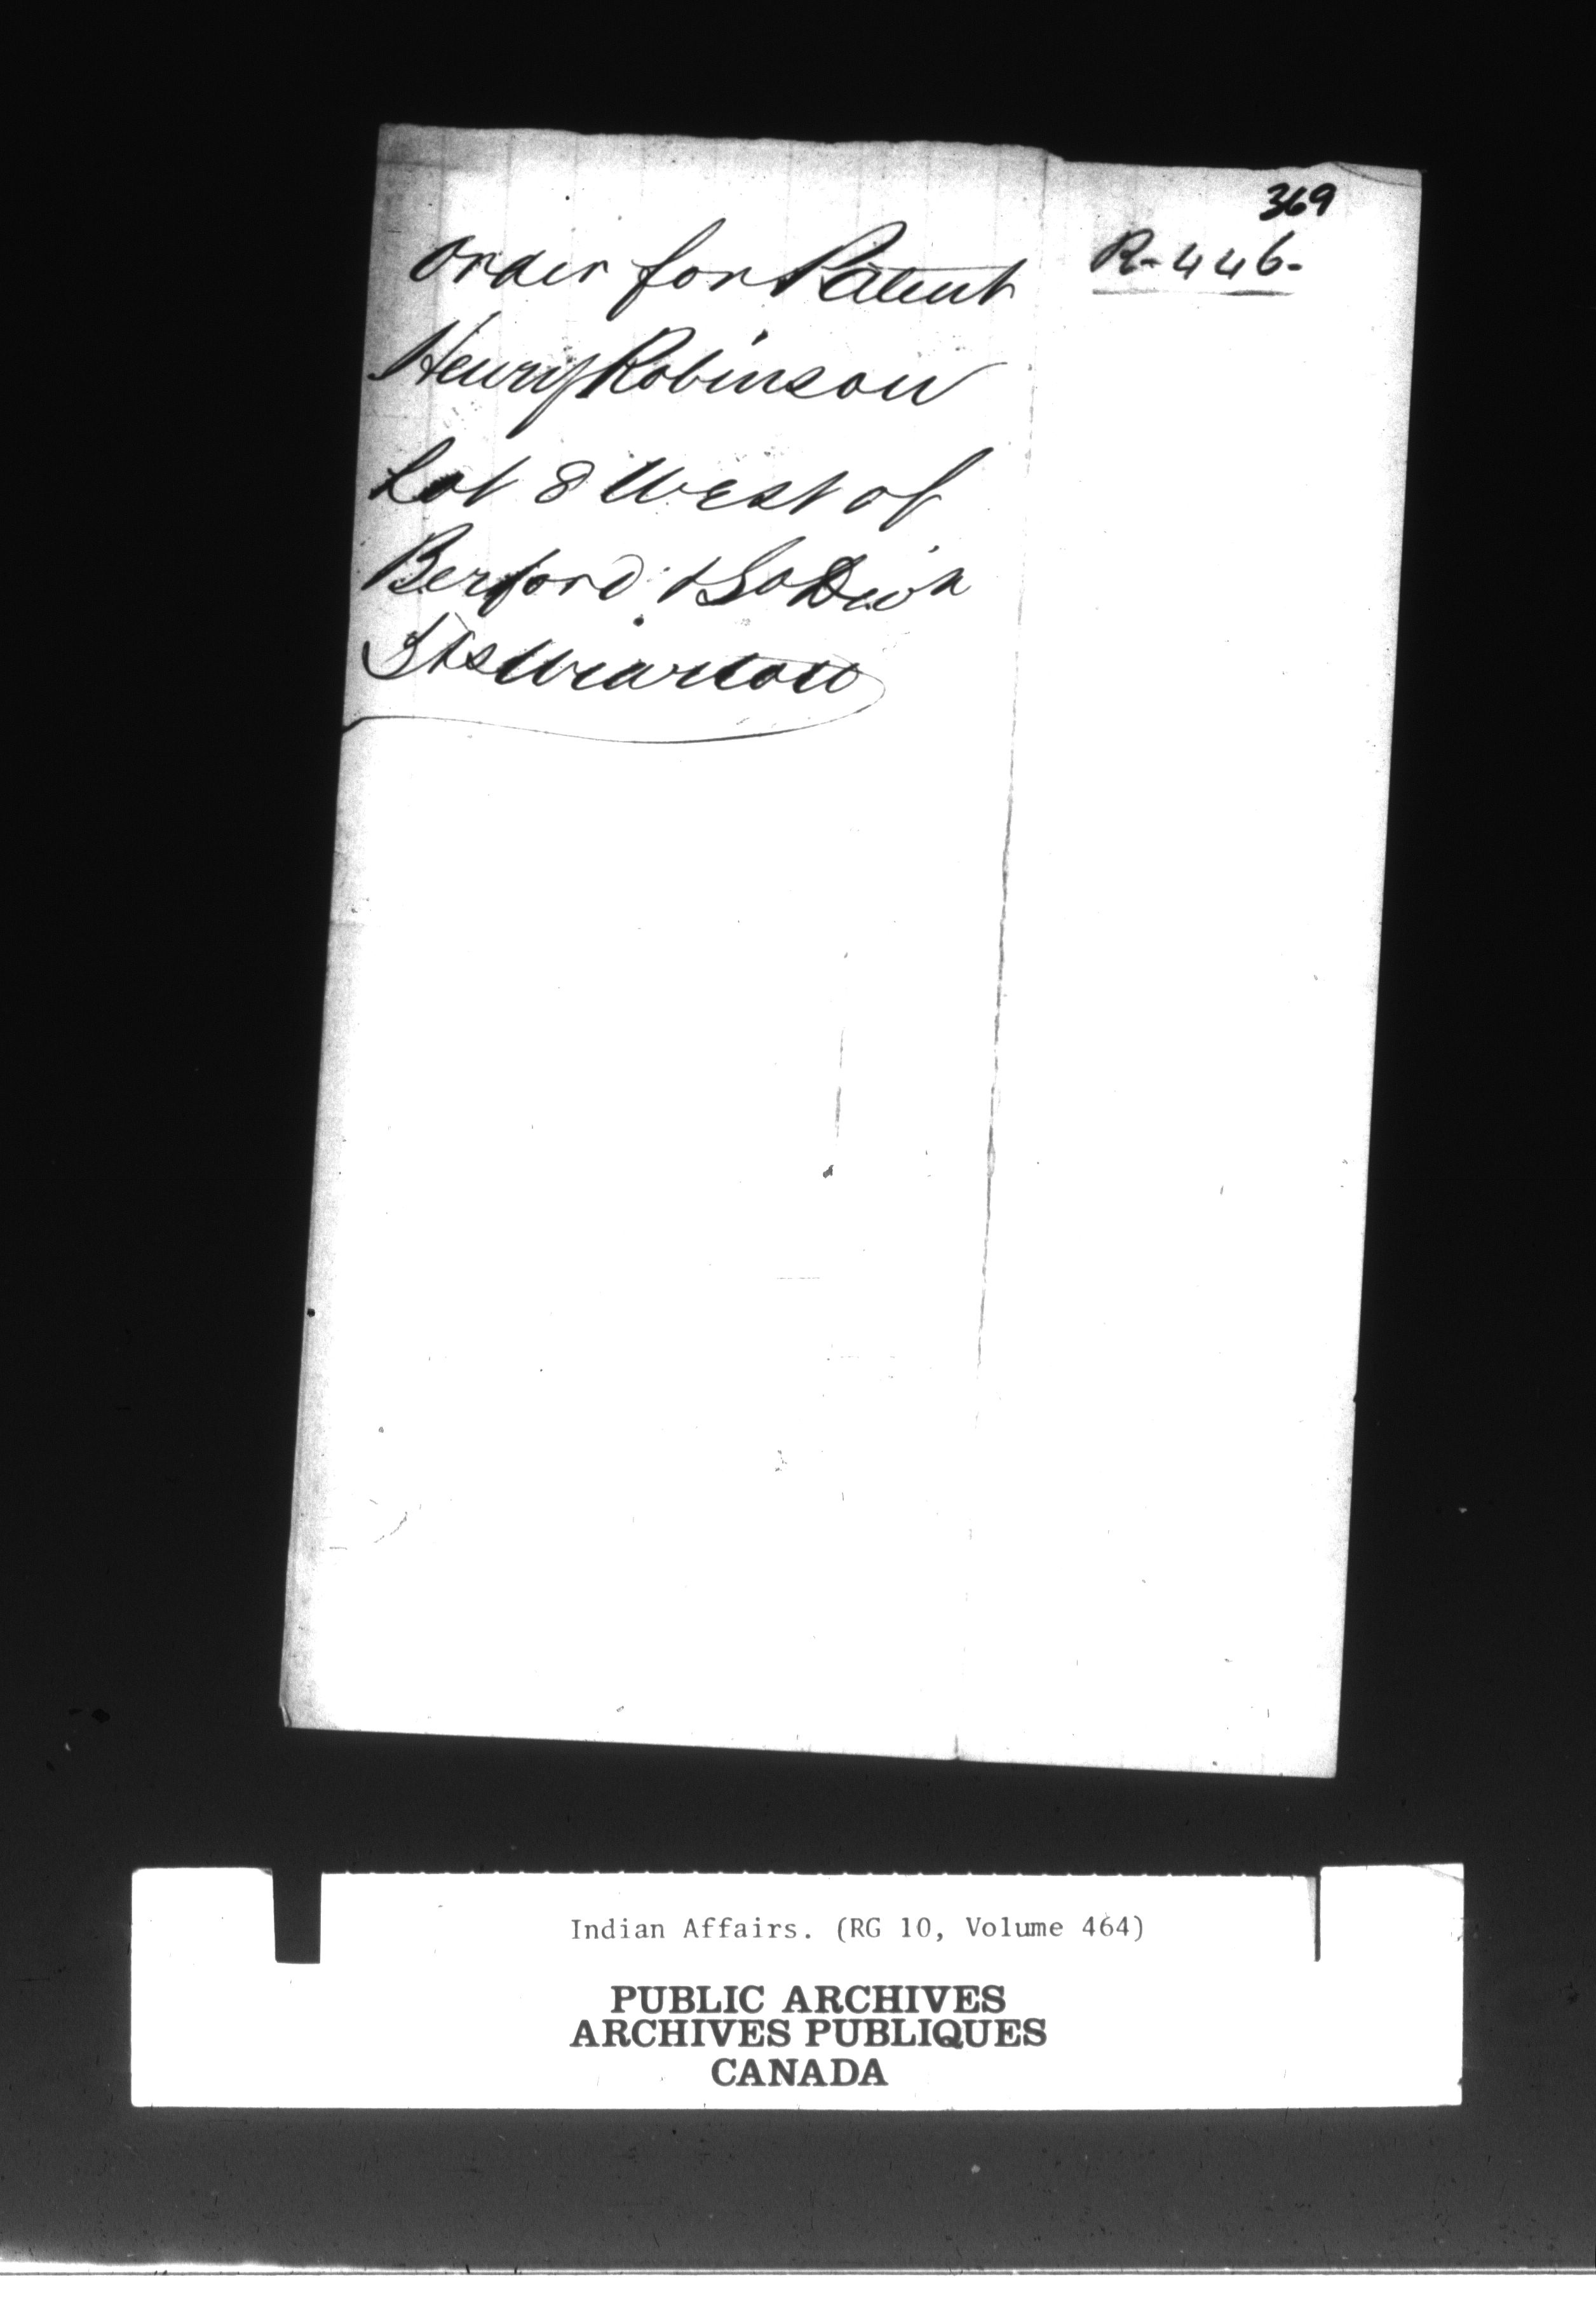 369
R-446-
Order for Patent
Henry Robinson
Lot 8 West of
Berford &
Sts Wiarton
Indian Affairs. (RG 10, Volume 464)
PUBLIC ARCHIVES
ARCHIVES PUBLIQUES
CANADA